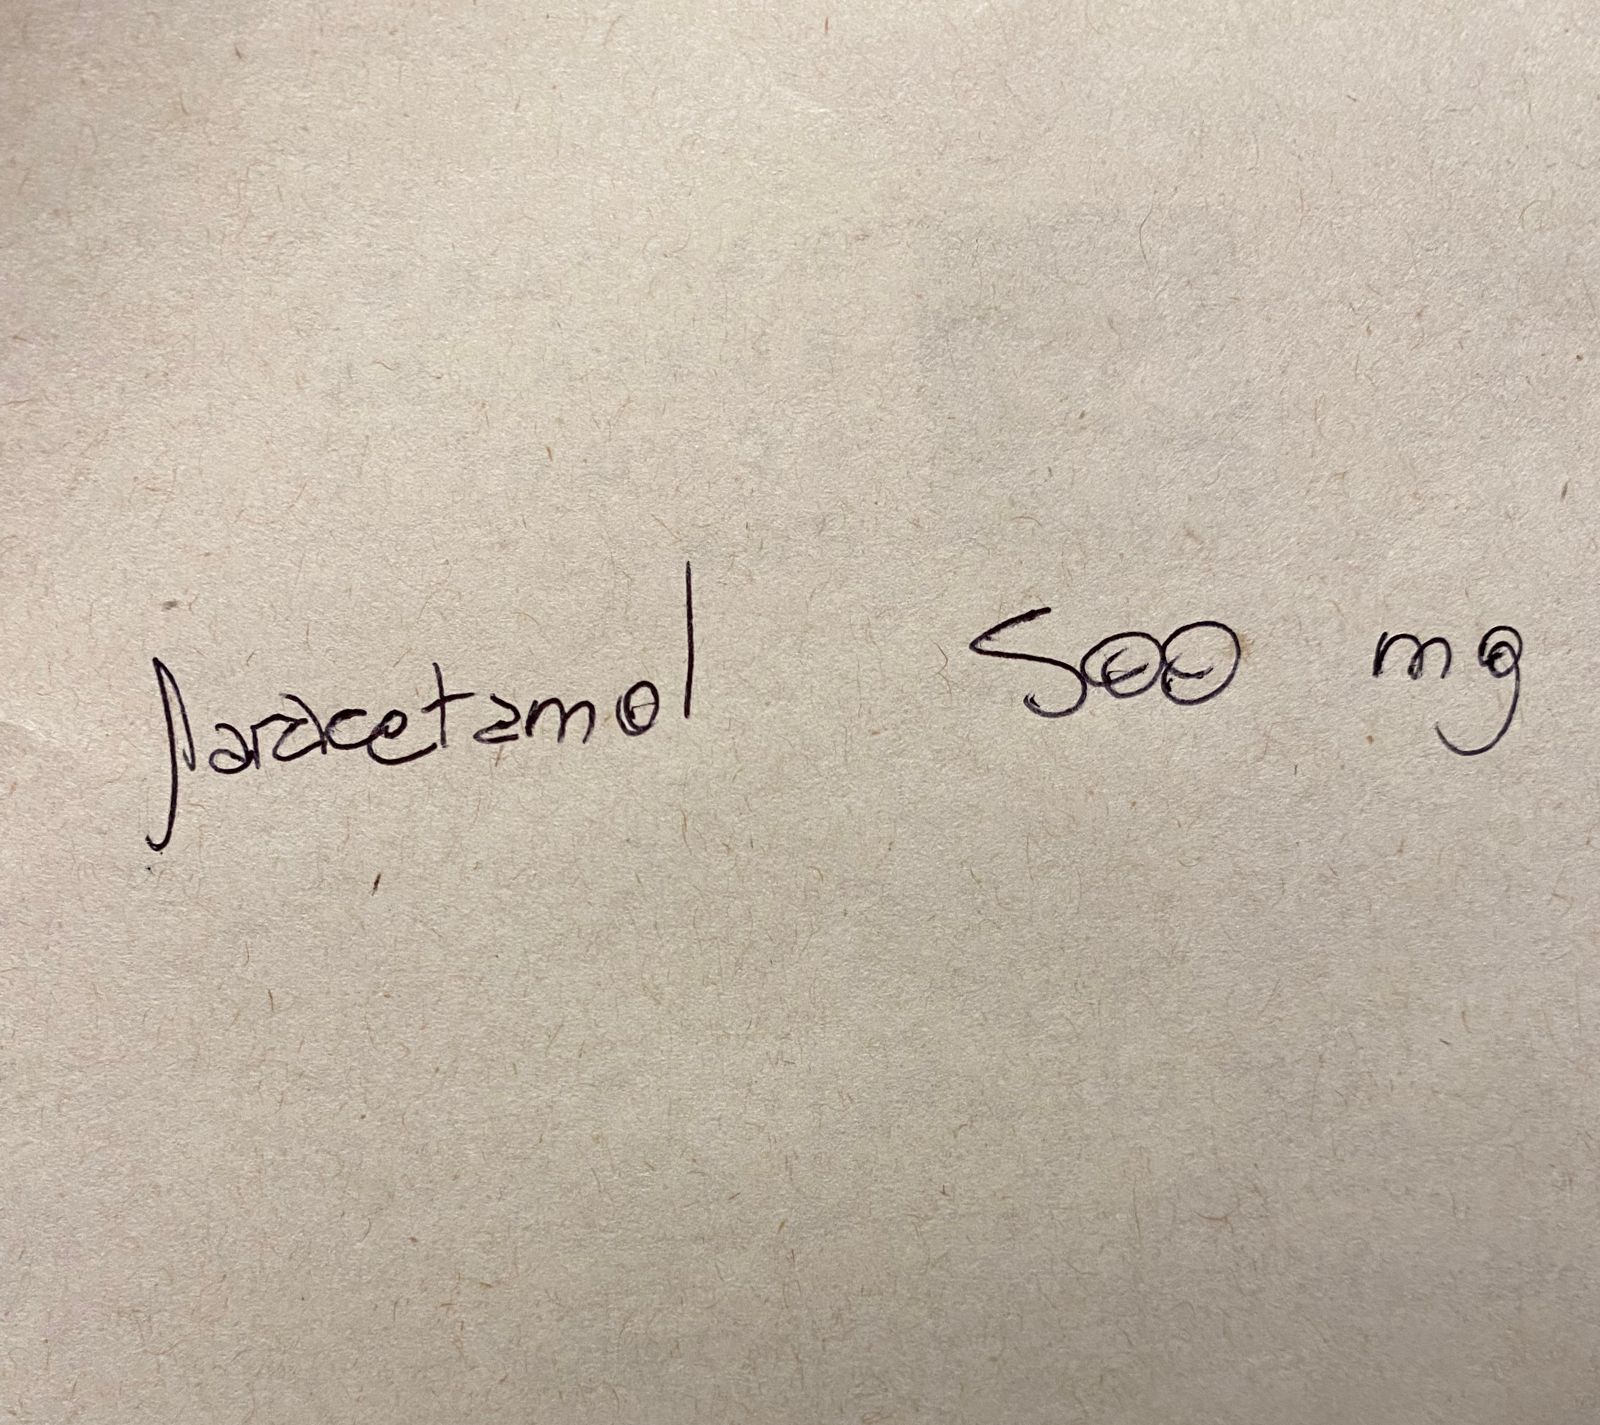 paracetamol 500 mg